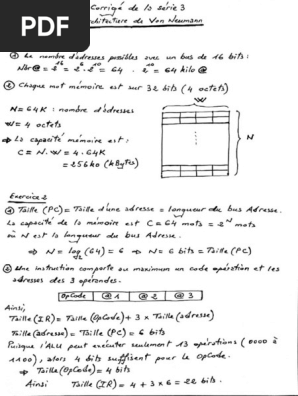 PDF
Corrigé de la série 3
Architecture de Von Neumann
① Le nombre d'adresses possibles avec un bus de 16 bits :
Nbr@ = 2^16 = 2^6 . 2^10 = 64 . 2^10 = 64 kilo @
② Chaque mot mémoire est sur 32 bits (4 octets)
W
N = 64K : nombre d'adresses
W = 4 octets
N
⇒ La capacité mémoire est :
C = N . W = 4 . 64K
= 256ko (kBytes)
Exercice 2
① Taille (PC) = Taille d'une adresse = longueur du bus Adresse.
La capacité de la mémoire est C = 64 mots = 2^N mots
où N est la longueur du bus Adresse.
⇒ N = log2 (64) = 6 ⇒ N = 6 bits = Taille (PC)
② Une instruction comporte au maximum un code opération et les
adresses des 3 opérandes.
OpCode @1 @2 @3
Ainsi,
Taille (IR) = Taille (OpCode) + 3 × Taille (adresse)
Taille (adresse) = Taille (PC) = 6 bits
Puisque l'ALU peut exécuter seulement 13 opérations (0000 à
1100), alors 4 bits suffisent pour le OpCode.
⇒ Taille (OpCode) = 4 bits
Ainsi Taille (IR) = 4 + 3 × 6 = 22 bits.